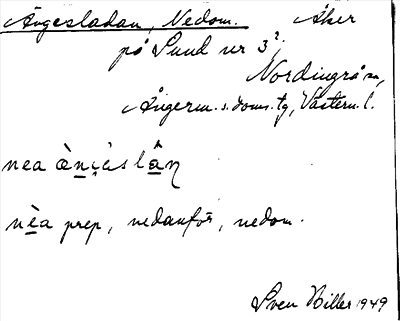 Ängesladan, Nedom. Åker
på Sund nr 3²,
Nordingrå sn,
Ångerm. s. doms. tg, Västern. l.
nea
nèa prep, nedanför, nedom.
Sven Hiller 1949